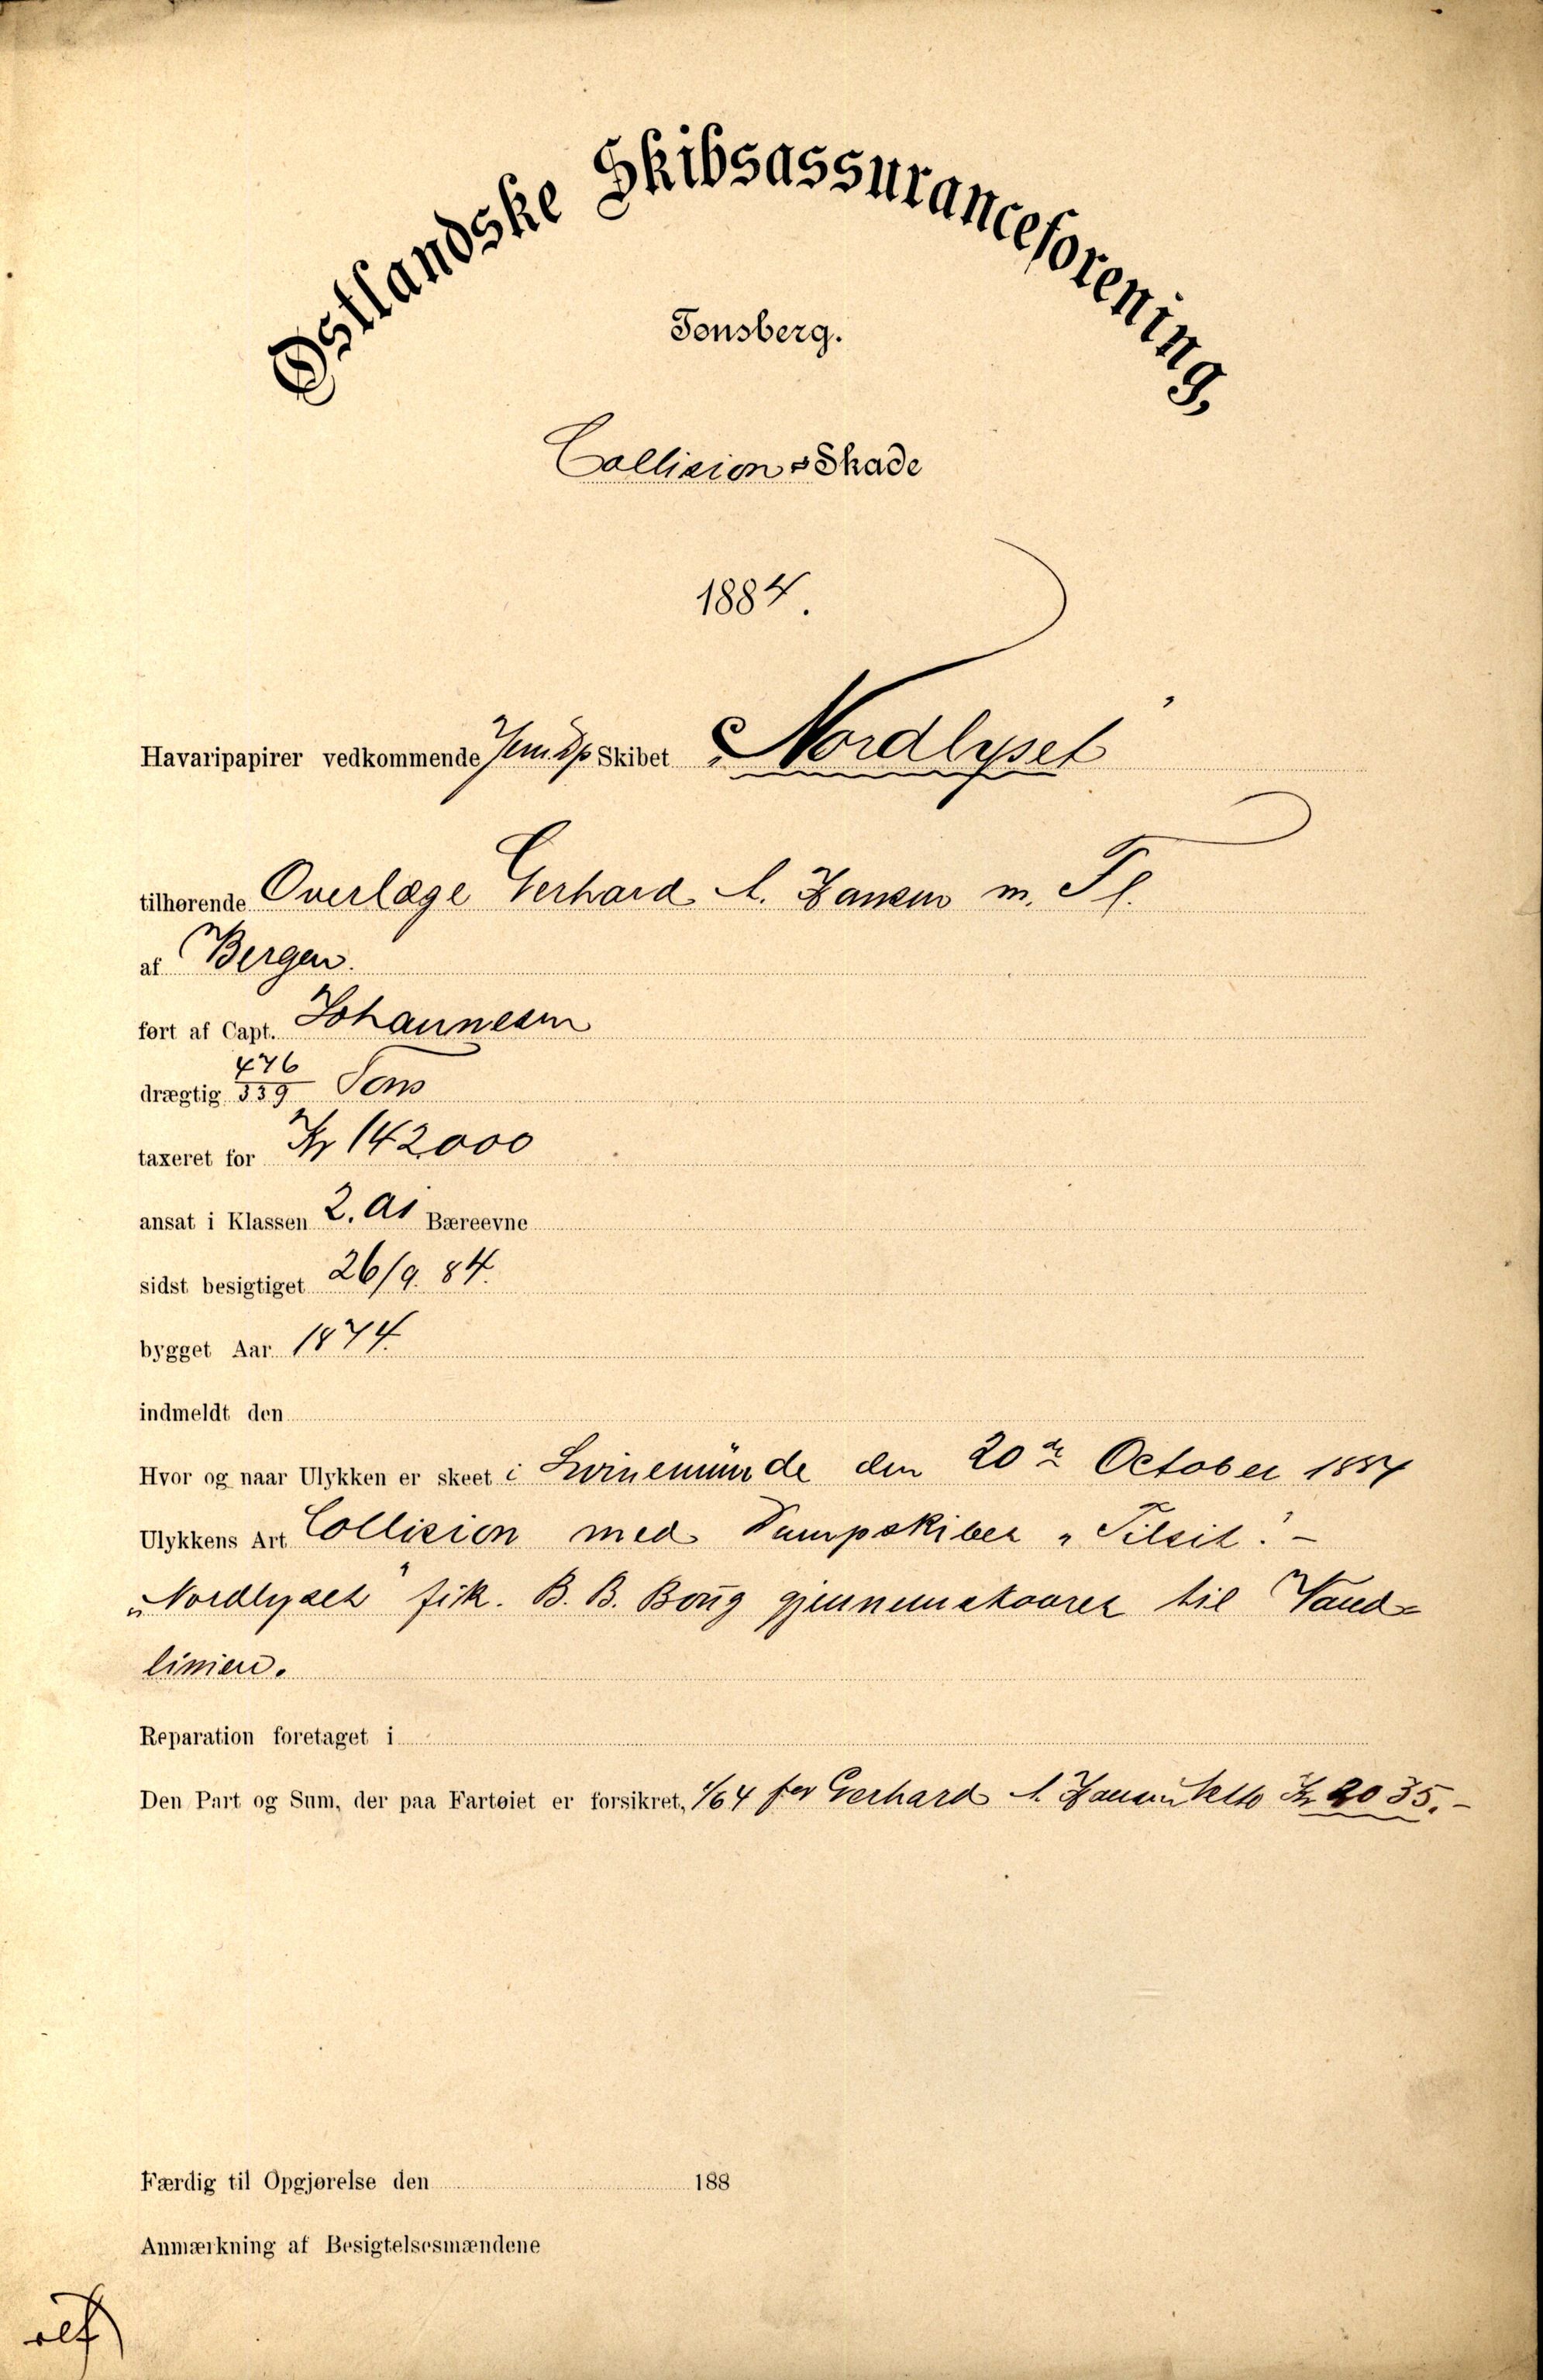 Østlandske Skibsassuranceforening,
Tønsberg.
Collision-Skade
1884.
Havaripapirer vedkommende Skibet „Nordlyset"
tilhørende Overlæge Gerhard A. Hansen m. Fl.
af Bergen.
ført af Capt. Johannesen
drægtig 476/339 Tons
taxeret for Kr 142000
ansat i Klassen 2. A1 Bæreevne
sidst besigtiget 26/9. 84.
bygget Aar 1874.
indmeldt den
Hvor og naar Ulykken er skeet i Swinemünde den 20de October 1884
Ulykkens Art Collision med Dampskibet „Tilsit". –
„Nordlyset" fik B. B. Boug gjennemskaaret til Vand=
linien.
Reparation foretaget i
Den Part og Sum, der paa Fartøiet er forsikret, 1/64 for Gerhard A. Hansen Kr 2035. –
Færdig til Opgjørelse den 188
Anmærkning af Besigtelsesmændene